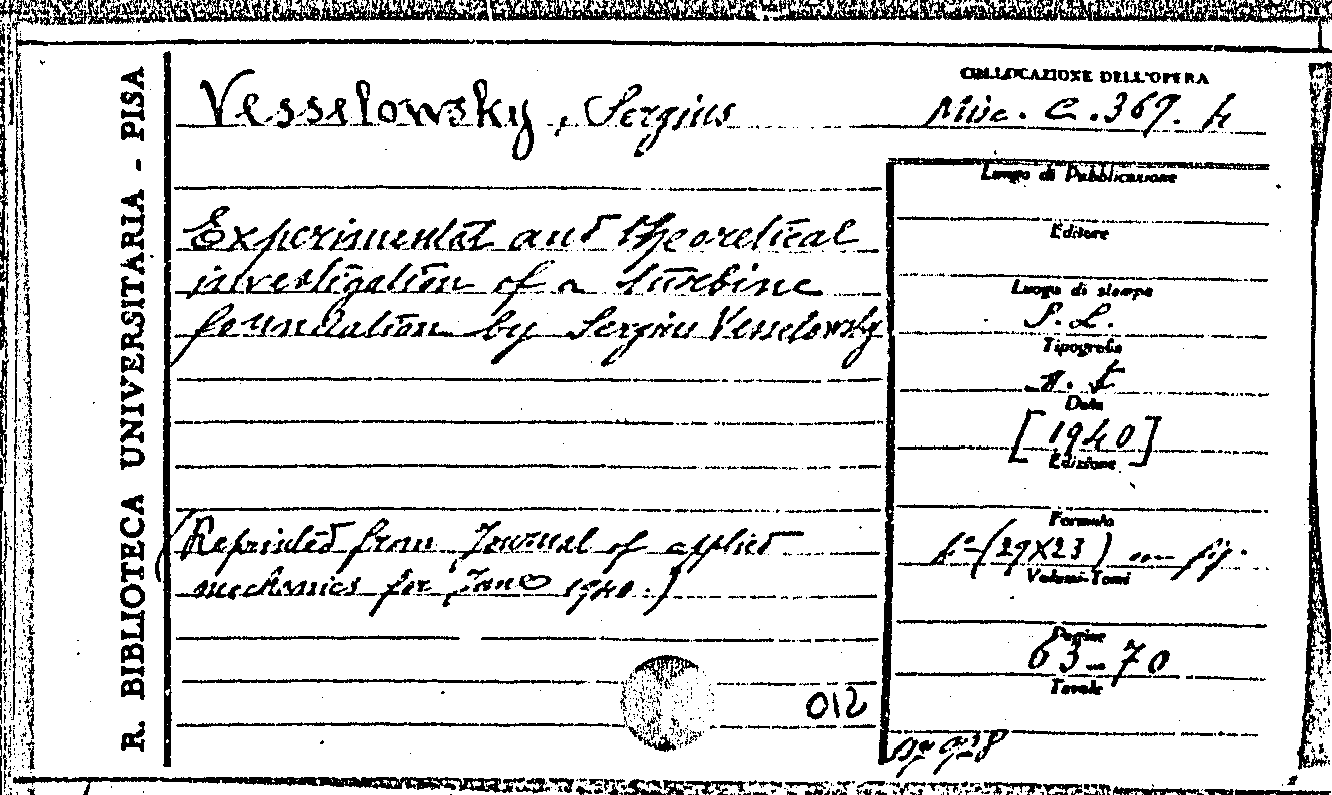 R. BIBLIOTECA UNIVERSITARIA - PISA
Vesselowsky, Sergius
COLLOCAZIONE DELL'OPERA
Misc. C. 369. 4
Experimental and theoretical
investigation of a turbine
foundation by Sergius Vesselowsky
(Reprinted from Journal of applied
mechanics for June 1940.)
012
Luogo di Pubblicazione
Editore
Luogo di stampa
S. L.
Tipografia
n. t
Data
[1940]
Edizione
Formato
(29X23) fig.
Volumi-Tomi
Pagine
63-70
Tavole
928